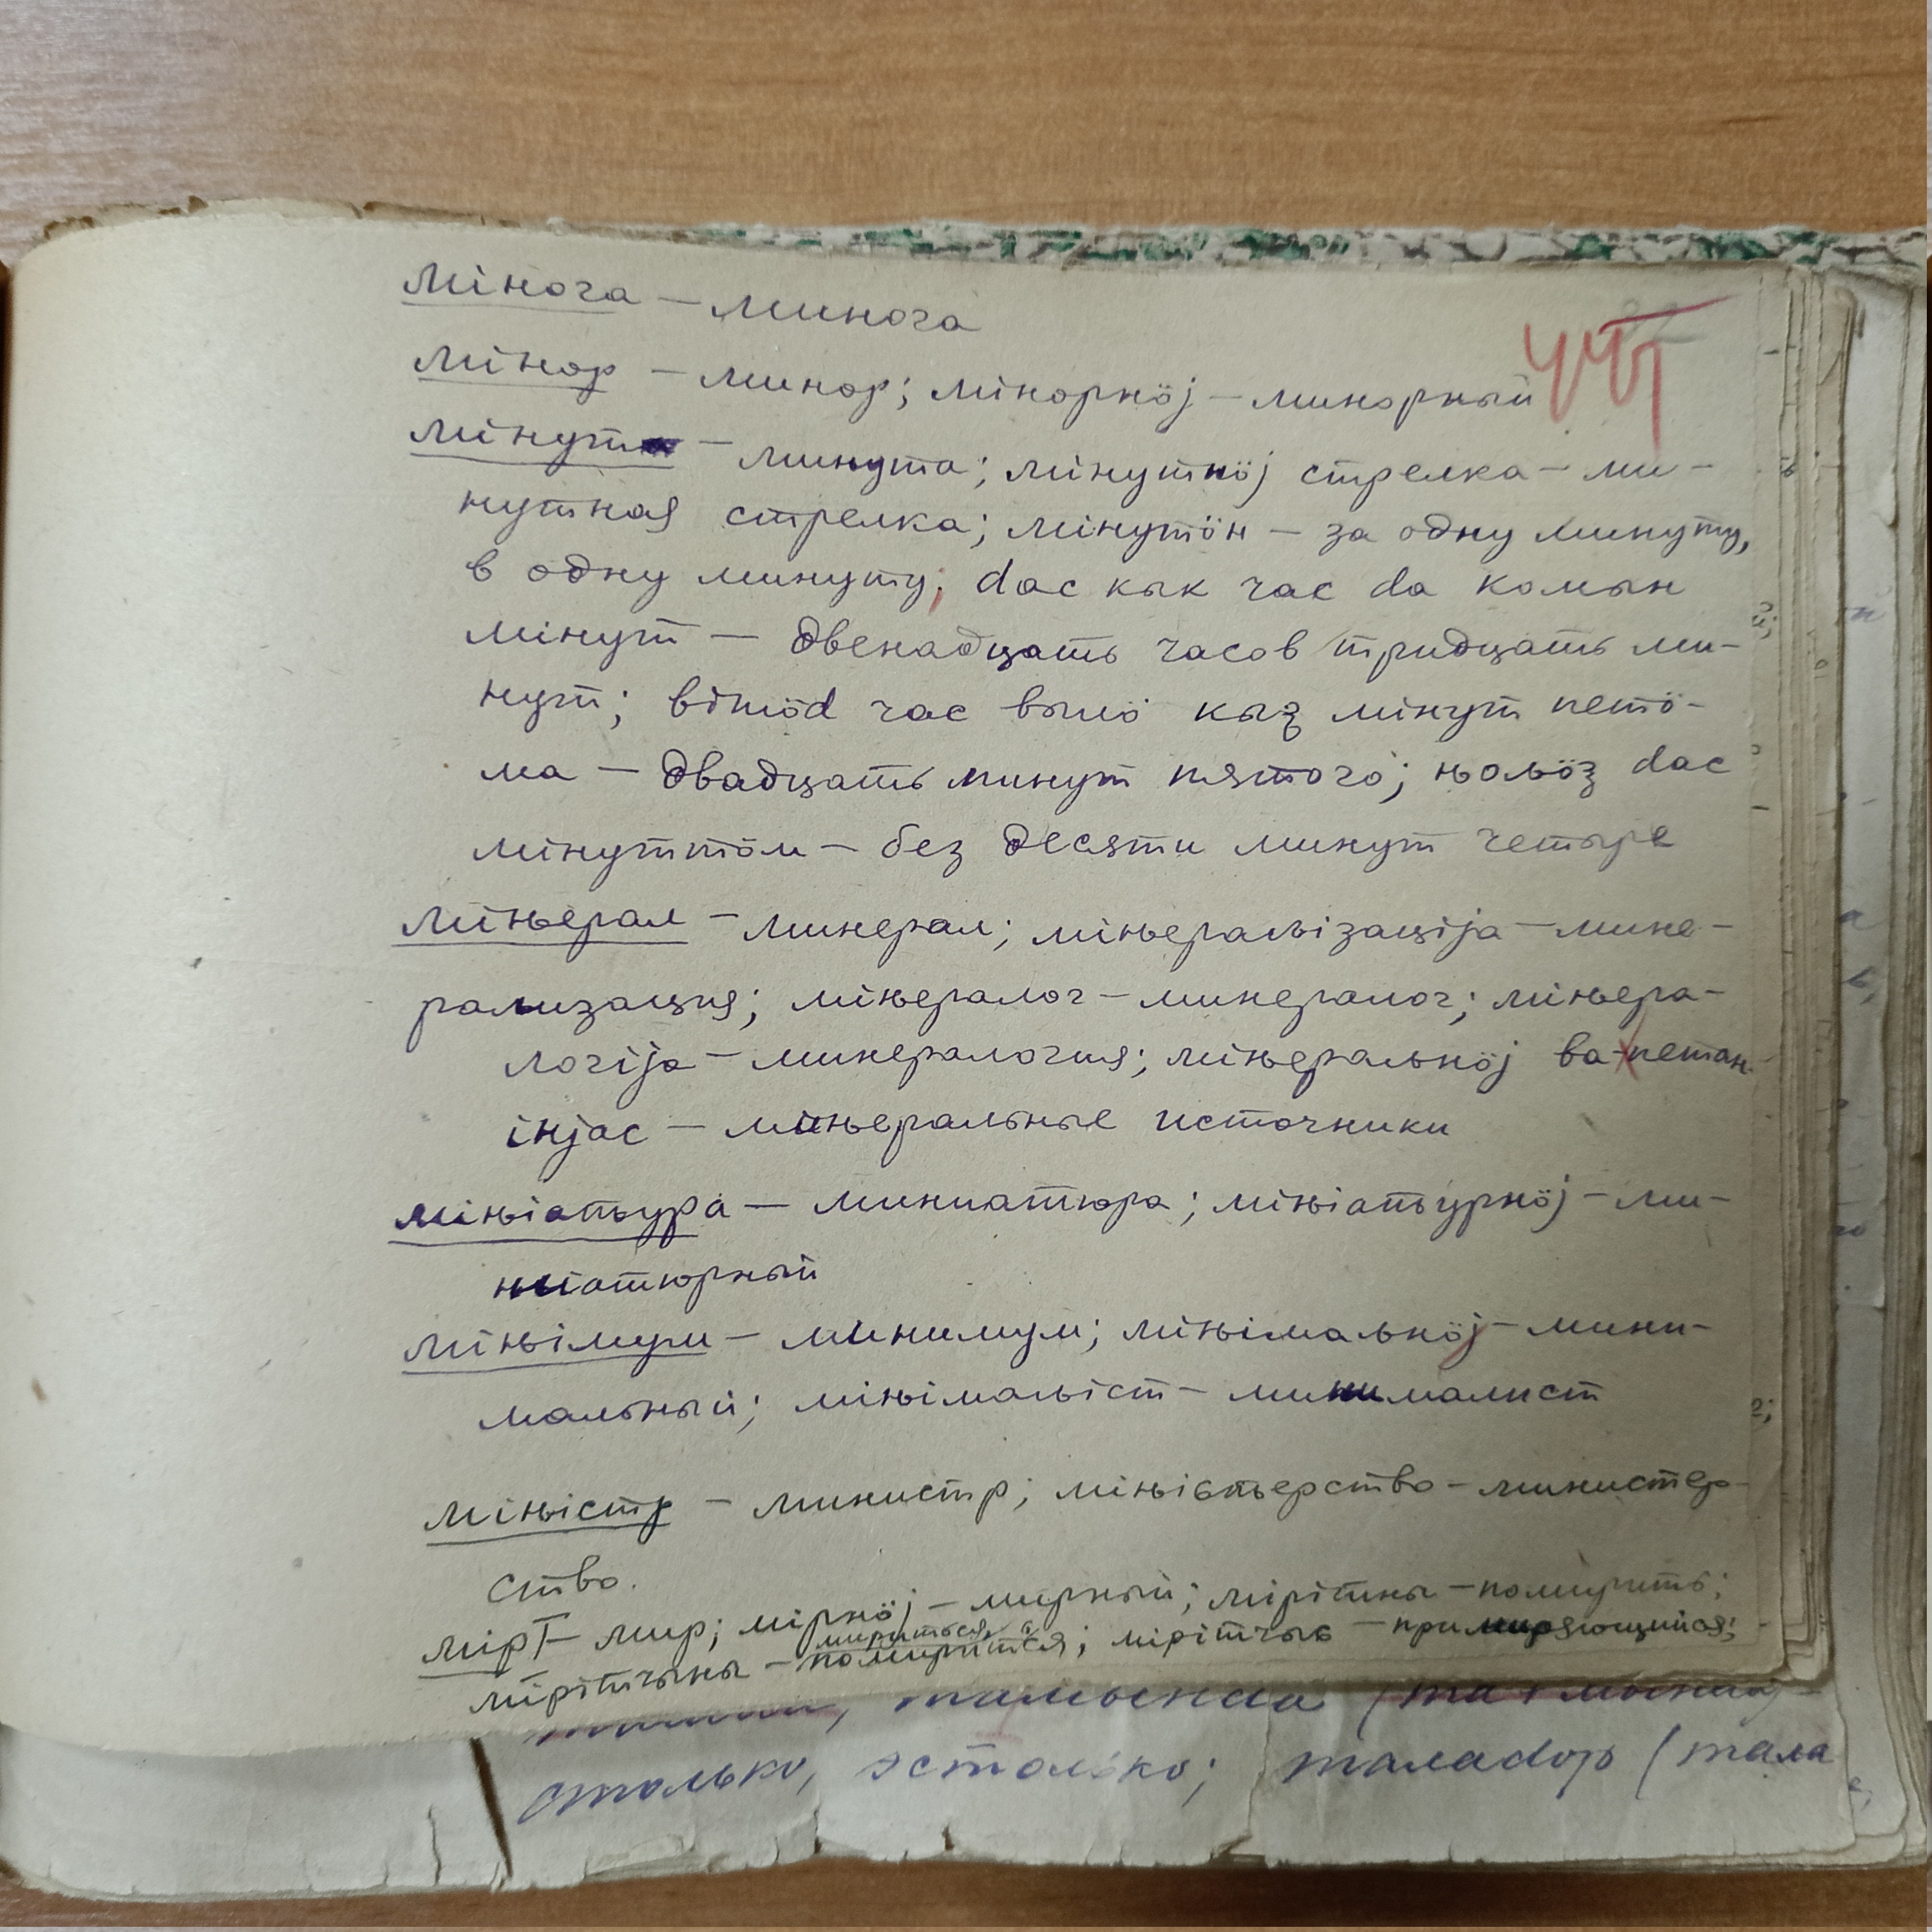 мінога — минога
мінор — минор; мінорнӧј — минорный
мінут — минута; мінутнӧј стрелка — ми-
нутная стрелка; мінутӧн — за одну минуту,
в одну минуту; dас кык час dа комын
мінут — двенадцать часов тридцать ми-
нут; вітӧd час вылӧ кыз мінут петӧ-
ма — двадцать минут пятого; њољӧз dас
мінуттӧм — без десяти минут четыре
міњерал — минерал; міњераљізаціја — мине-
рализация; міњералог — минералог; міњера-
логіја — минералогия; міњераљнӧј ва петан-
інјас — минеральные источники
міњіатьура — миниатюра; міњіатьурнӧј — ми-
ниатюрный
міњімум — минимум; міњімаљнӧј — мини-
мальный; міњімаљіст — минималист
міњістр — министр; міњісտьерство — министер-
ство.
мір I — мир; мірнӧј — мирный; мірітны — помирить;
мириться,
мірітчыны — помириться; мірітчыс — примиряющийся;
столько, эстолько; таладор (тала